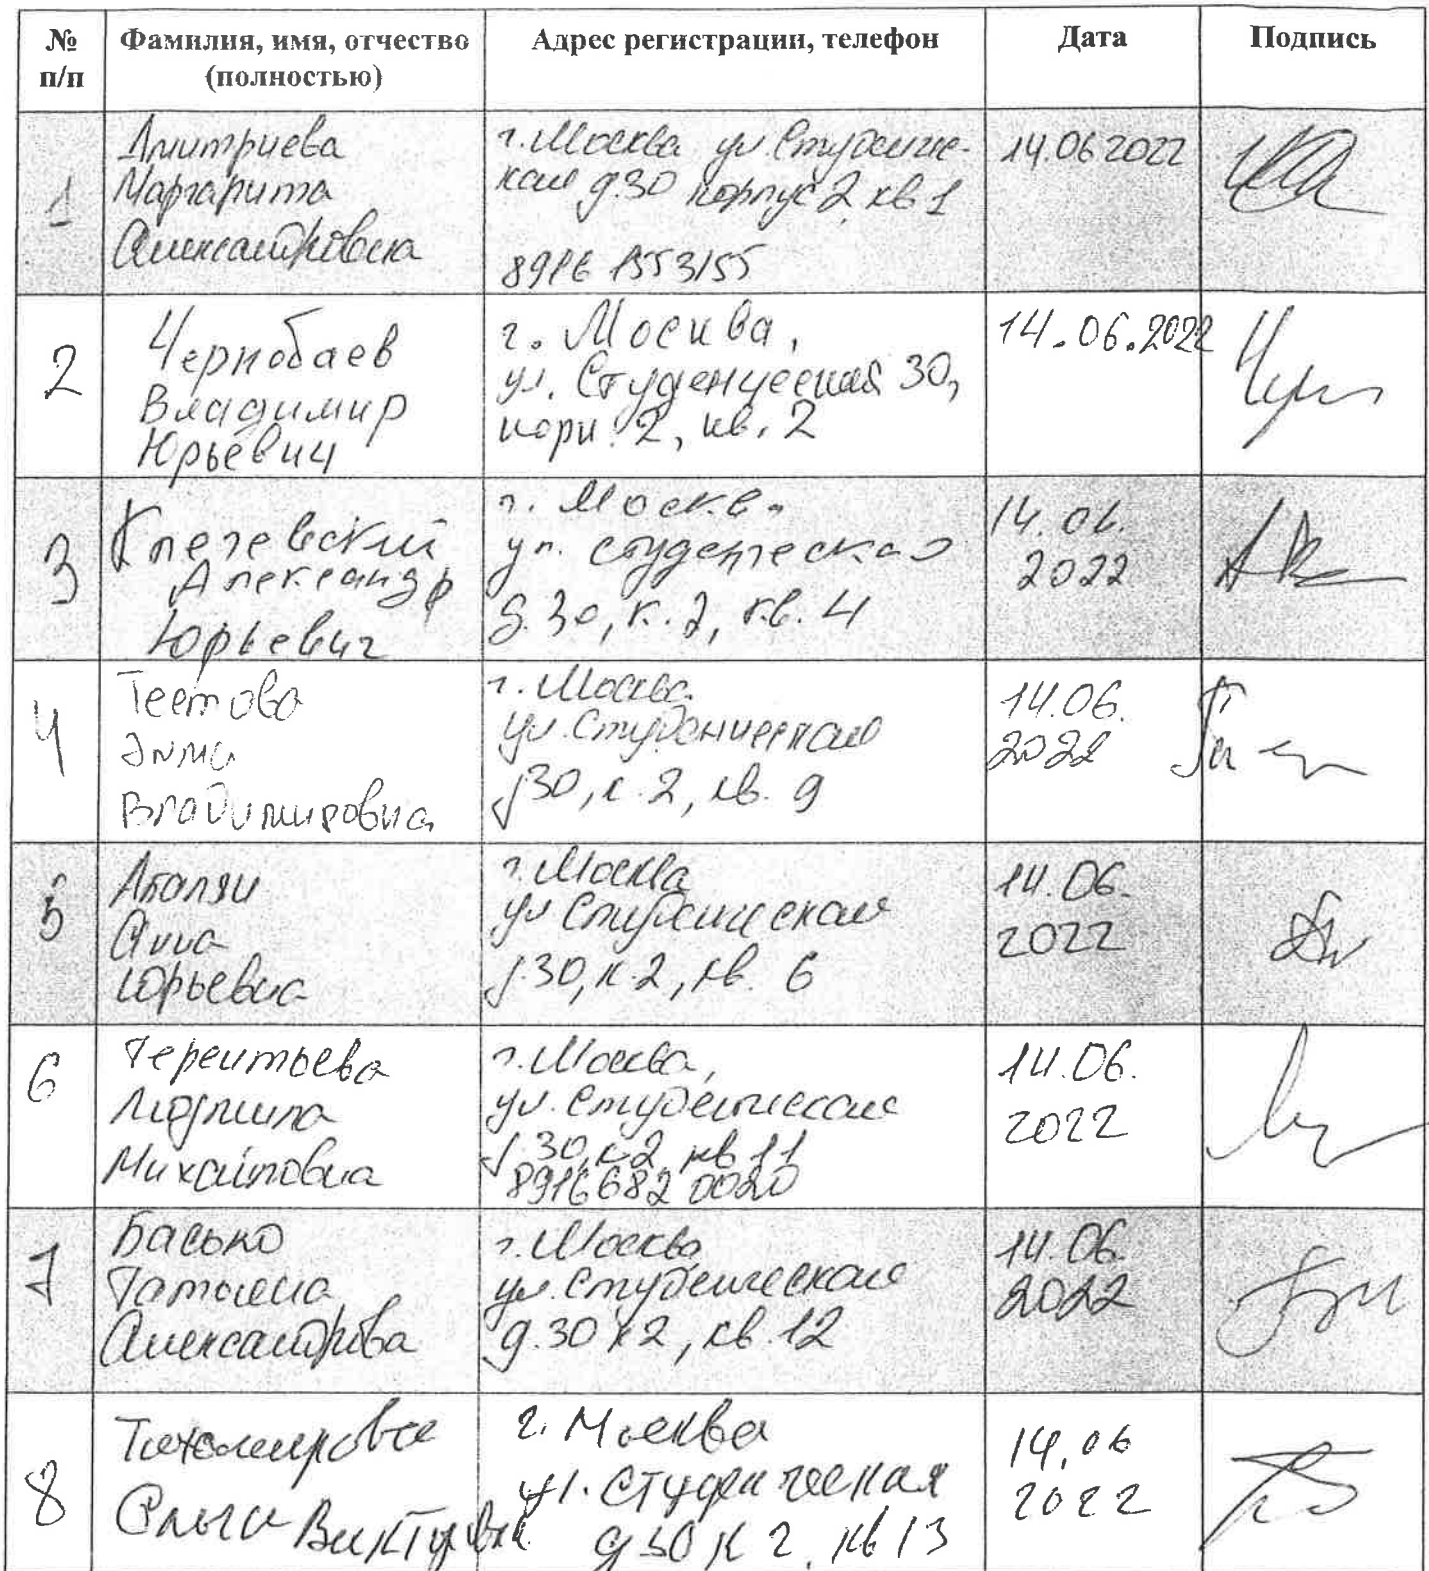 № п/п
Фамилия, имя, отчество (полностью)
Адрес регистрации, телефон
Дата
Подпись
1
Дмитриева
Маргарита
Александровна
г. Москва ул Студенче-
кая д.30 корпус 2, кв 1
8916 1553155
14.06 2022
2
Чернобаев
Владимир
Юрьевич
г. Москва,
ул. Студенческая 30,
корп. 2, кв. 2
14.06.2022
3
Александр
Юрьевич
г. Москва
ул. студенческая
д. 30, к. 2, кв. 4
14.06.
2022
4
Владимировна
г. Москва
ул. Студенческая
д 30, к. 2, кв. 9
14.06.
2022
5
Анна
Юрьевна
г. Москва
ул Студенческая
д. 30, к. 2, кв. 6
14.06.
2022
6
Терентьева
Людмила
Михайловна
г. Москва,
ул. Студенческая
д. 30, к 2 кв 11
8916 682 0020
14.06.
2022
7
Басько
Татьяна
Александровна
г. Москва
ул. Студенческая
д. 30 к 2, кв. 12
14.06.
2022
8
Тихомирова
Ольга Викторовна
г. Москва
ул. Студенческая
д 30 к 2, кв 13
14.06
2022